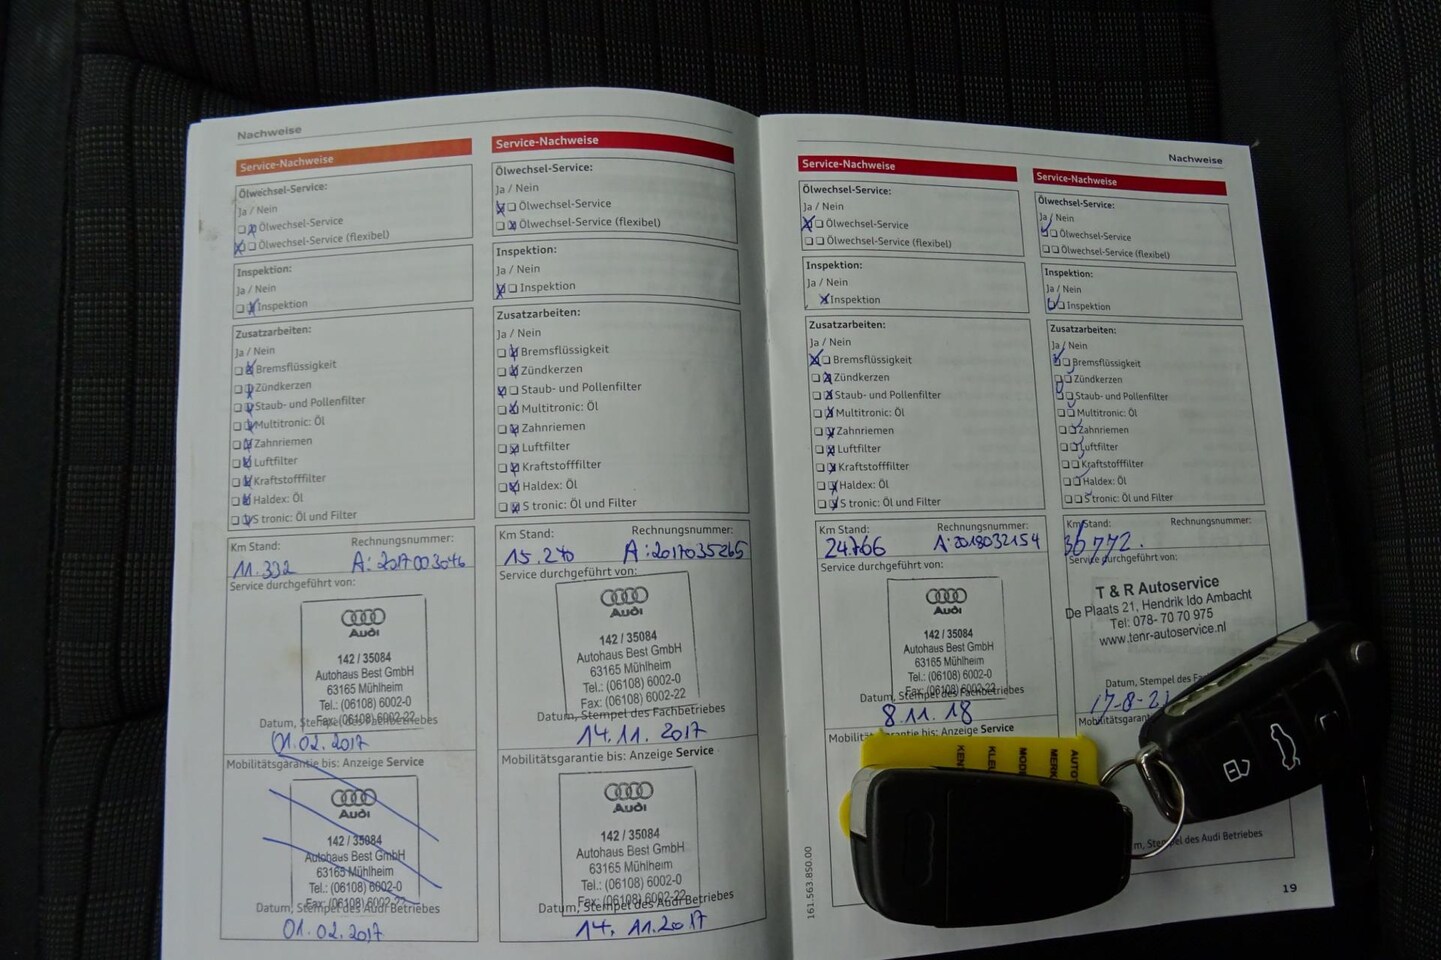 Nachweise
Service-Nachweise
Ölwechsel-Service:
Ja / Nein
Ölwechsel-Service
Ölwechsel-Service (flexibel)
Inspektion:
Ja / Nein
Inspektion
Zusatzarbeiten:
Ja / Nein
Bremsflüssigkeit
Zündkerzen
Staub- und Pollenfilter
Multitronic: Öl
Zahnriemen
Luftfilter
Kraftstofffilter
Haldex: Öl
S tronic: Öl und Filter
Km Stand: Rechnungsnummer:
11.332 A: 2017003046
Service durchgeführt von:
Audi
142 / 35084
Autohaus Best GmbH
63165 Mühlheim
Tel.: (06108) 6002-0
Fax: (06108) 6002-22
Datum, Stempel des Fachbetriebes
01.02.2017
Mobilitätsgarantie bis: Anzeige Service
Audi
142 / 35084
Autohaus Best GmbH
63165 Mühlheim
Tel.: (06108) 6002-0
Fax: (06108) 6002-22
Datum, Stempel des Audi Betriebes
01.02.2017
Service-Nachweise
Ölwechsel-Service:
Ja / Nein
Ölwechsel-Service
Ölwechsel-Service (flexibel)
Inspektion:
Ja / Nein
Inspektion
Zusatzarbeiten:
Ja / Nein
Bremsflüssigkeit
Zündkerzen
Staub- und Pollenfilter
Multitronic: Öl
Zahnriemen
Luftfilter
Kraftstofffilter
Haldex: Öl
S tronic: Öl und Filter
Km Stand: Rechnungsnummer:
15.270 A:2017035265
Service durchgeführt von:
Audi
142 / 35084
Autohaus Best GmbH
63165 Mühlheim
Tel.: (06108) 6002-0
Fax: (06108) 6002-22
Datum, Stempel des Fachbetriebes
14.11.2017
Mobilitätsgarantie bis: Anzeige Service
Audi
142 / 35084
Autohaus Best GmbH
63165 Mühlheim
Tel.: (06108) 6002-0
Fax: (06108) 6002-22
Datum, Stempel des Audi Betriebes
14.11.2017
Service-Nachweise
Ölwechsel-Service:
Ja / Nein
Ölwechsel-Service
Ölwechsel-Service (flexibel)
Inspektion:
Ja / Nein
Inspektion
Zusatzarbeiten:
Ja / Nein
Bremsflüssigkeit
Zündkerzen
Staub- und Pollenfilter
Multitronic: Öl
Zahnriemen
Luftfilter
Kraftstofffilter
Haldex: Öl
S tronic: Öl und Filter
Km Stand: Rechnungsnummer:
24.766 A:2018032154
Service durchgeführt von:
Audi
142 / 35084
Autohaus Best GmbH
63165 Mühlheim
Tel.: (06108) 6002-0
Fax: (06108) 6002-22
Datum, Stempel des Fachbetriebes
8.11.18
Mobilitätsgarantie bis: Anzeige Service
161.563.850.00
Nachweise
Service-Nachweise
Ölwechsel-Service:
Ja / Nein
Ölwechsel-Service
Ölwechsel-Service (flexibel)
Inspektion:
Ja / Nein
Inspektion
Zusatzarbeiten:
Ja / Nein
Bremsflüssigkeit
Zündkerzen
Staub- und Pollenfilter
Multitronic: Öl
Zahnriemen
Luftfilter
Kraftstofffilter
Haldex: Öl
S tronic: Öl und Filter
Km Stand: Rechnungsnummer:
36772.
Service durchgeführt von:
T & R Autoservice
De Plaats 21, Hendrik Ido Ambacht
Tel: 078- 70 70 975
www.tenr-autoservice.nl
Datum, Stempel des Fa
17-8-21
Mobilitätsgarant
m, Stempel des Audi Betriebes
19
AUTO
MERK
MOD
KLE
KEN